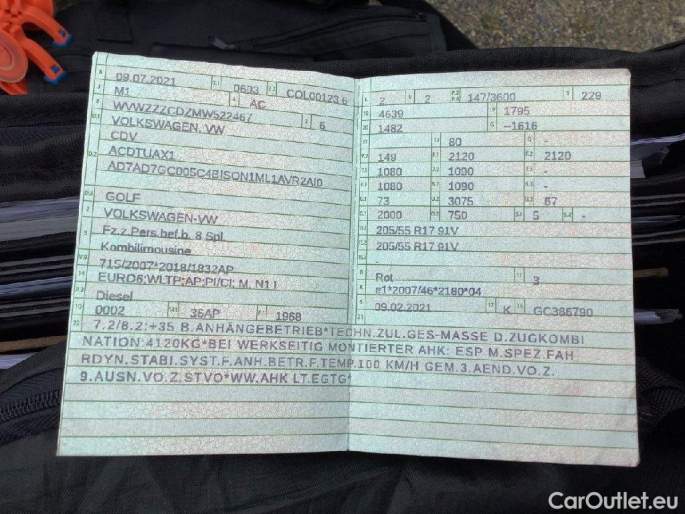 09.07.2021 0603 COL00123 6
M1 AC
WVWZZZCDZMW522467 6
VOLKSWAGEN, VW
CDV
ACDTUAX1
GOLF
VOLKSWAGEN-VW
Fz.z.Pers.bef.b. 8 Spl.
Kombilimousine
715/2007*2018/1832AP
EURO6;WLTP;AP;PI/CI; M, N1 I
Diesel
0002 35AP 1968
2 2 147/3600 229
4639 1795
1482 –1616
80 -
149 2120 2120
1080 1090 -
1080 1090 -
73 3075 67
2000 750 5 -
205/55 R17 91V
205/55 R17 91V
Rot 3
e1*2007/46*2180*04
09.02.2021 K GC386790
7.2/8.2:+35 B.ANHÄNGEBETRIEB*TECHN.ZUL.GES-MASSE D.ZUGKOMBI
NATION:4120KG*BEI WERKSEITIG MONTIERTER AHK: ESP M.SPEZ.FAH
RDYN.STABI.SYST.F.ANH.BETR.F.TEMP.100 KM/H GEM.3.AEND.VO.Z.
9.AUSN.VO.Z.STVO*WW.AHK LT.EGTG*
CarOutlet.eu